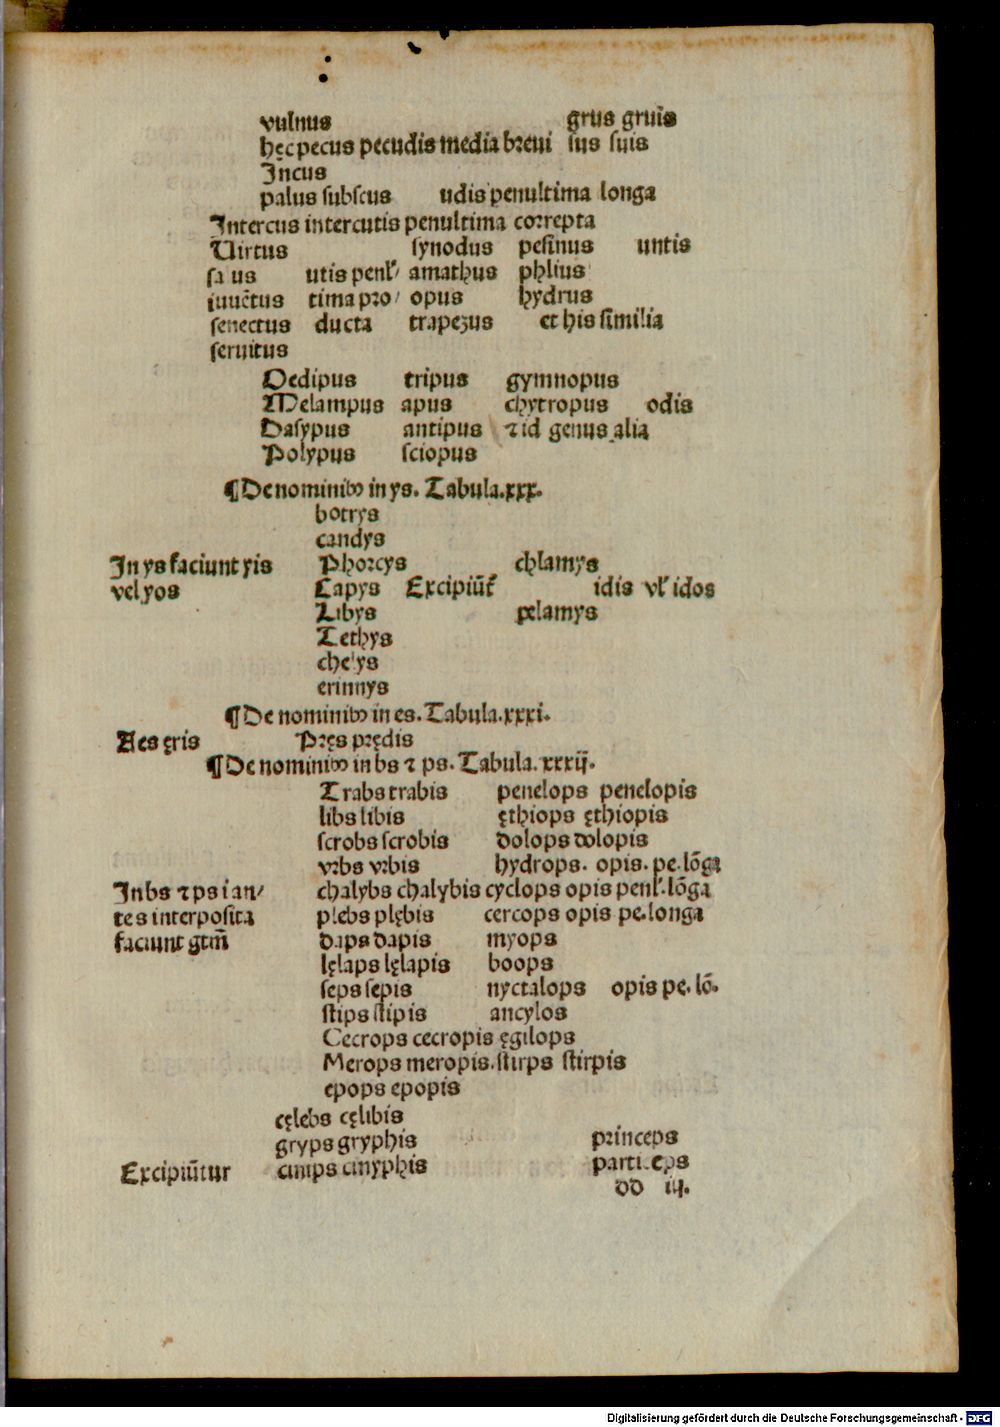 vulnus grus gruis
hęc pecus pecudis media breui sus suis
Incus
palus subscus udis penultima longa
Intercus intercutis penultima correpta
Uirtus synodus pesinus untis
sa us utis penl̕/ amathus phlius
iuuẽtus tima pro/ opus hydrus
senectus ducta trapezus et his similia
seruitus
Oedipus tripus gymnopus
Melampus apus chytropus odis
Dasypus antipus ⁊ id genus alia
Polypus sciopus
¶De nominibꝰ in ys. Tabula.xxx.
botrys
candys
In ys faciunt yis Phorcys chlamys
vel yos Capys Excipiũt̕ idis vl̕ idos
Libys pelamys
Tethys
chelys
erinnys
¶De nominibꝰ in es. Tabula.xxxi.
Aes ęris Pręs prędis
¶De nominibꝰ in bs ⁊ ps. Tabula.xxxij.
Trabs trabis penelops penelopis
libs libis ęthiops ęthiopis
scrobs scrobis dolops dolopis
vrbs vrbis hydrops. opis. pe.lõga
In bs ⁊ ps i an/ chalybs chalybis cyclops opis penl̕.lõga
tes interposita plebs plębis cercops opis pe.longa
faciunt gtm̃ daps dapis myops
lęlaps lęlapis boops
seps sepis nyctalops opis pe.lõ.
stips stipis ancylos
Cecrops cecropis ęgilops
Merops meropis. stirps stirpis
epops epopis
cęlebs cęlibis
gryps gryphis princeps
Excipiũtur cinips cinyphis particeps
dd iij.
Digitalisierung gefördert durch die Deutsche Forschungsgemeinschaft - DFG